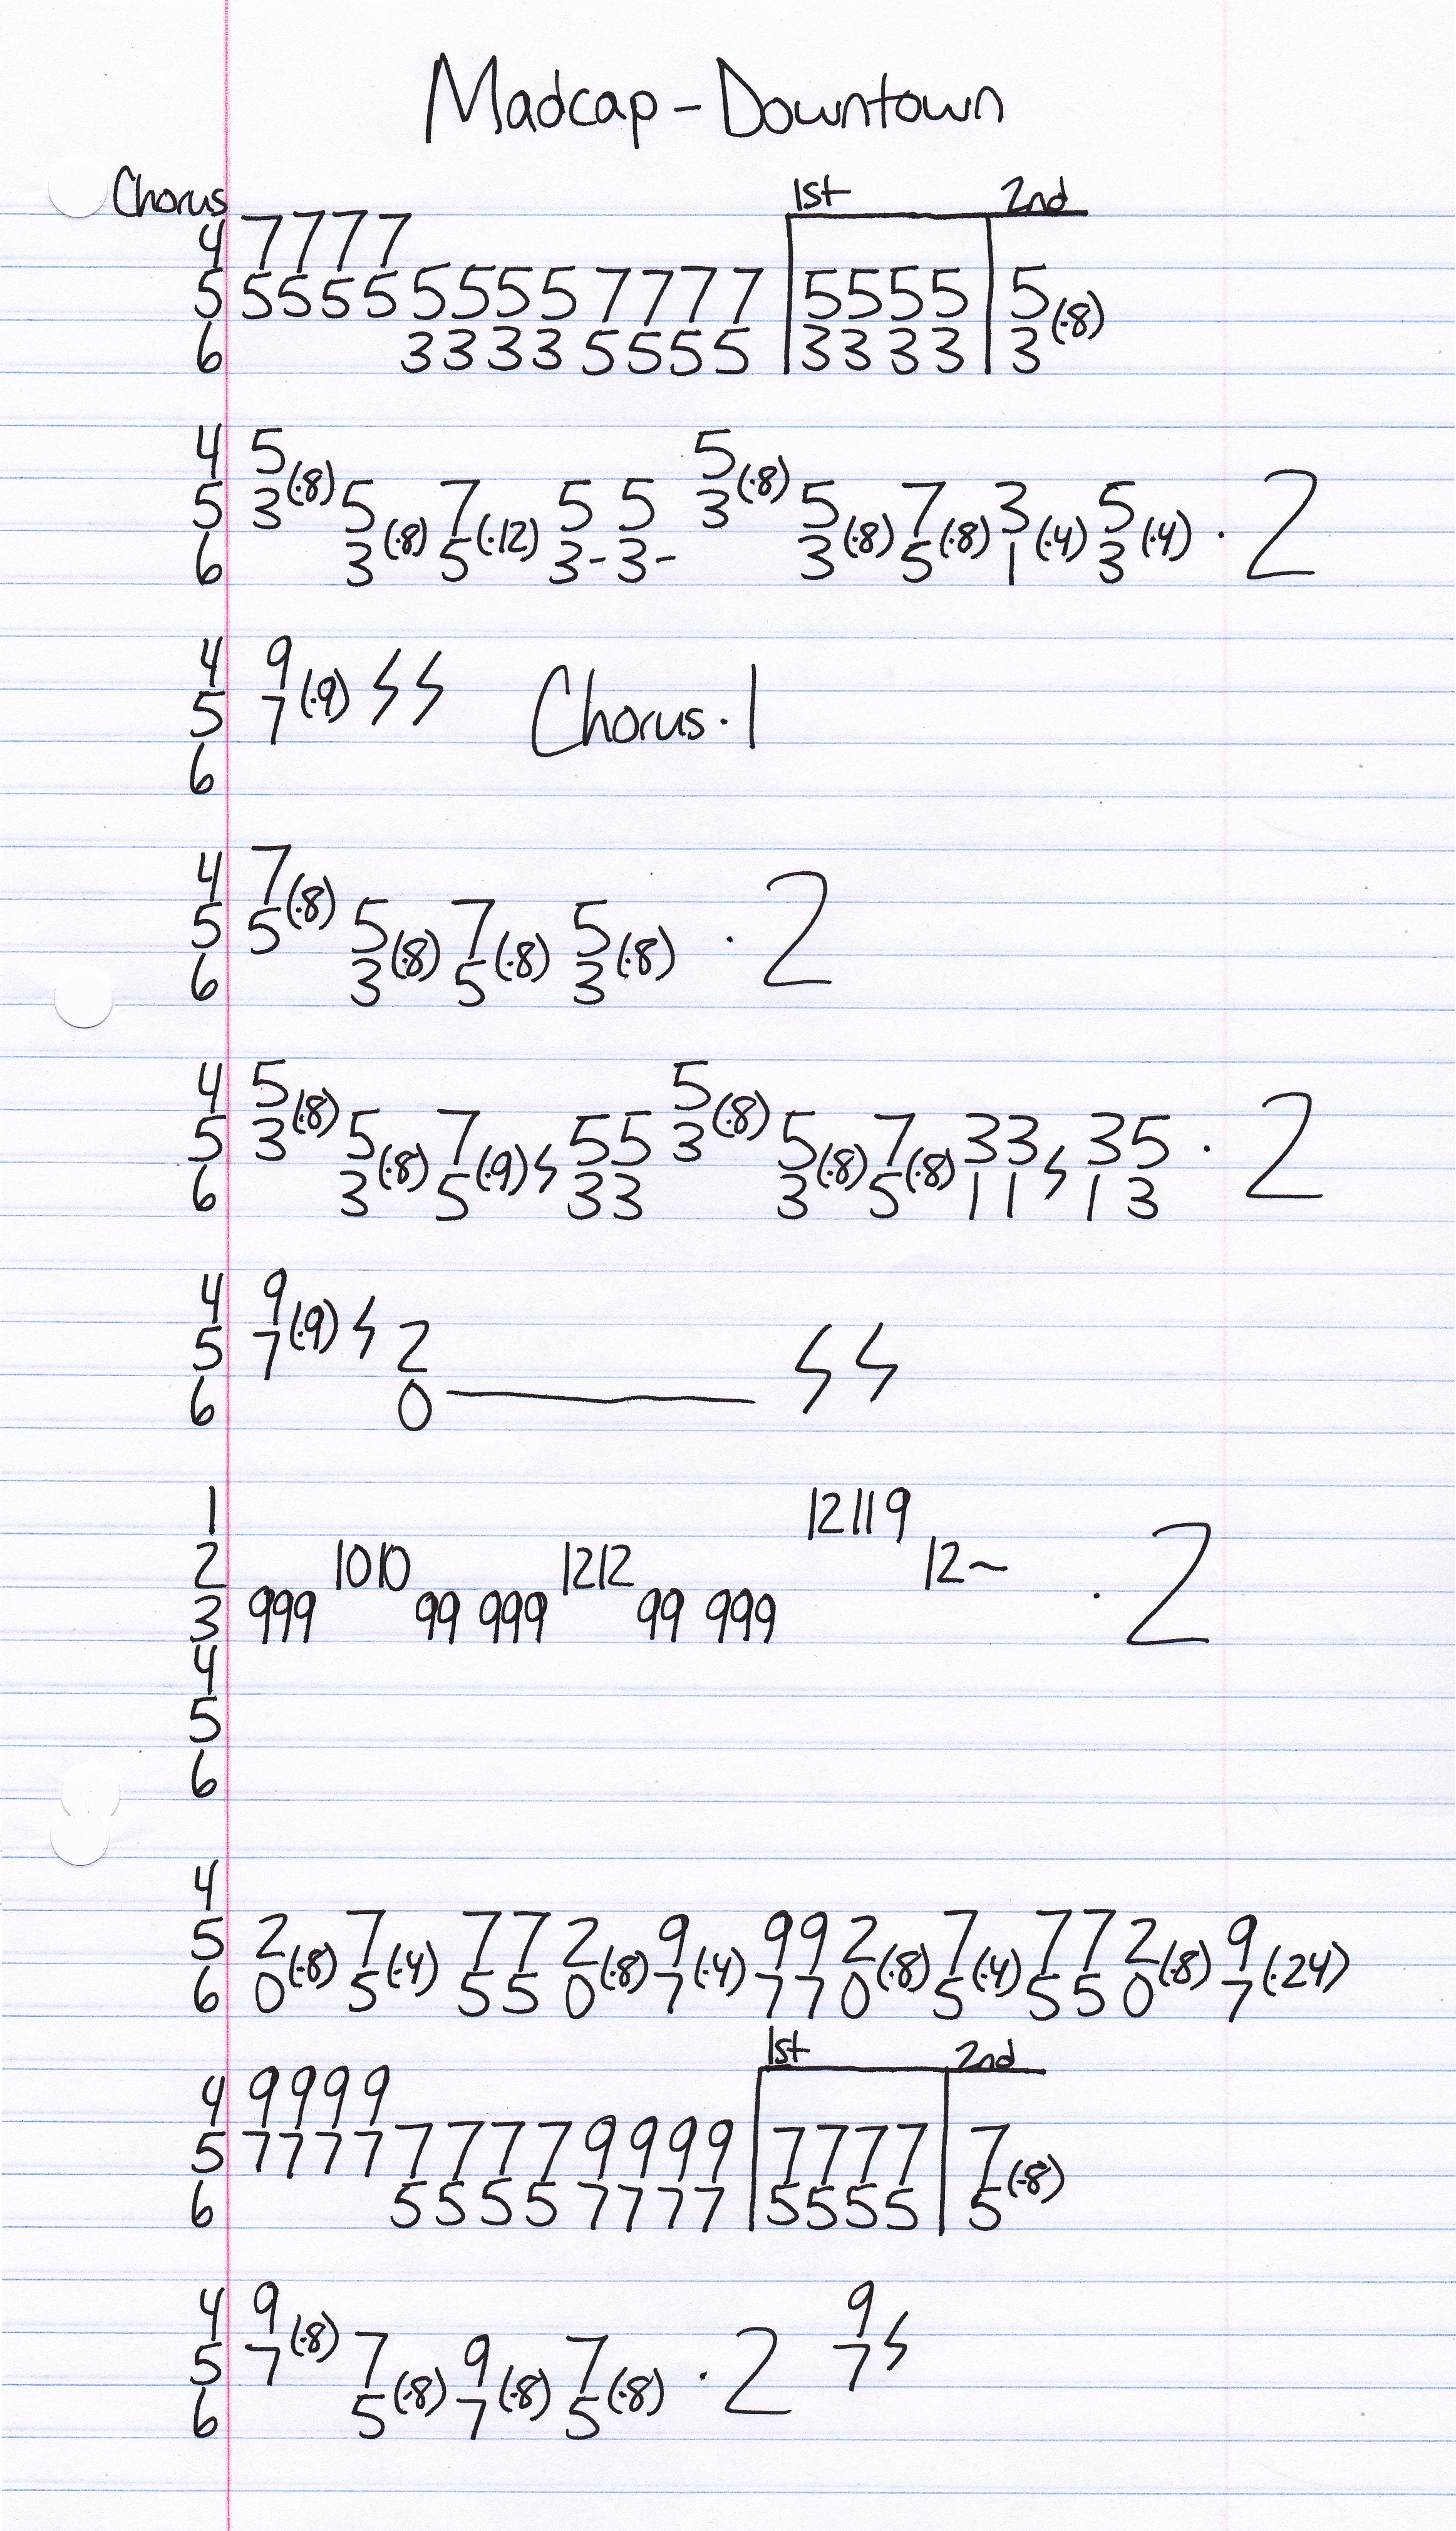 Madcap - Downtown
Chorus 1st 2nd
4 7777
5 5555 5555 7777 5555 5(·8)
6 3333 5555 3333 3
4 5(·8) 5(·8)
5 3 5(·8) 7(·12) 5 5 3 5(·8) 7(·8) 3(·4) 5(·4) · 2
6 3 5 3- 3- 3 5 1 3
4 9(·9) ϟ ϟ Chorus · 1
5 7
6
4 7(·8)
5 5 5(·8) 7(·8) 5(·8) · 2
6 3 5 3
4 5(·8) 5(·8)
5 3 5(·8) 7(·9) ϟ 55 3 5(·8) 7(·8) 33 ϟ 35 · 2
6 3 5 33 3 5 11 13
4 9(·9) ϟ
5 7 2 ϟ ϟ
6 0
1 12 11 9
2 10 10 12 12 12~ · 2
3 999 99 999 99 999
4
5
6
4
5 2(·8) 7(·4) 77 2(·8) 9(·4) 99 2(·8) 7(·4) 77 2(·8) 9(·24)
6 0 5 55 0 7 77 0 5 55 0 7
1st 2nd
4 9999
5 7777 7777 9999 7777 7(·8)
6 5555 7777 5555 5
4 9(·8) 9 ϟ
5 7 7(·8) 9(·8) 7(·8) · 2 7
6 5 7 5